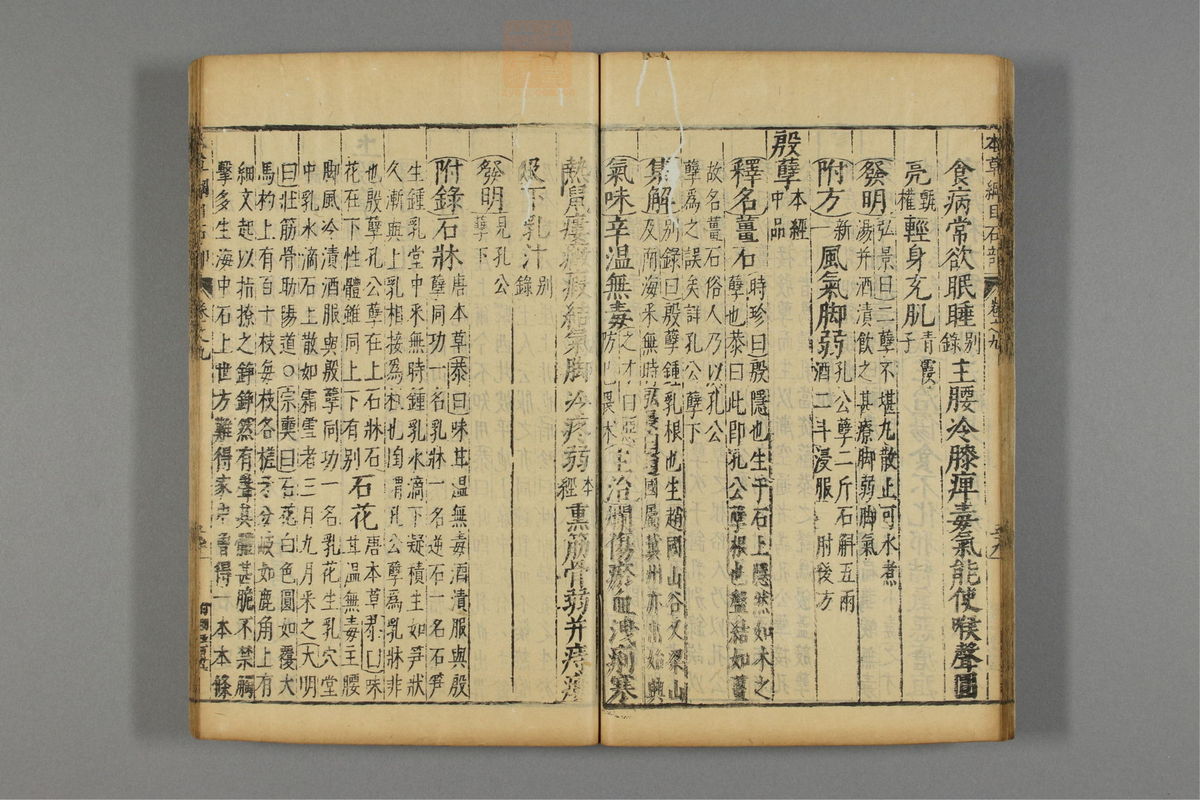 本草綱目石部 卷之九
食病常欲眠睡別錄主腰冷膝痺毒氣能使喉聲圓
亮甄權輕身充肌青霞子
發明弘景曰三孽不堪丸散止可水煮湯并酒漬飲之甚療脚弱脚氣
附方新一風氣脚弱孔公孽二斤石解五兩酒二斗浸服肘後方
殷孽本經中品
釋名薑石時珍曰殷隱也生于石上隱然如木之孽也恭曰此即孔公孽根也盤結如薑
故名薑石俗人乃以孔公孽爲之誤矣詳孔公孽下
集解別錄曰殷孽鍾乳根也生趙國山谷又梁山及南海采無時弘景曰趙國屬冀州亦出始興
氣味辛溫無毒之才曰惡防己畏术主治爛傷瘀血洩痢寒
熱鼠瘻癥瘕結氣脚冷疼弱本經熏筋骨弱并痔瘻
及下乳汁別錄
發明見孔公孽下
附錄石牀唐本草恭曰味甘溫無毒酒漬服與殷孽同功一名乳牀一名逆石一名石笋
生鍾乳堂中采無時鍾乳水滴下凝積生如笋狀
久漸與上乳相接爲柱也陶謂孔公孽爲乳牀非
也殷孽孔公孽在上石牀石花在下性體雖同上下有別石花唐本草恭曰味甘溫無毒主腰
脚風冷漬酒服與殷孽同功一名乳花生乳穴堂
中乳水滴石上散如霜雪者三月九月采之大明
曰壯筋骨助陽道○宗奭曰石花白色圓如覆大
馬杓上有百十枝每枝各槎牙分歧如鹿角上有
細文起以指撩之錚錚然有聲其體甚脆不禁觸
擊多生海中石上世方難得家中曾得一本本條